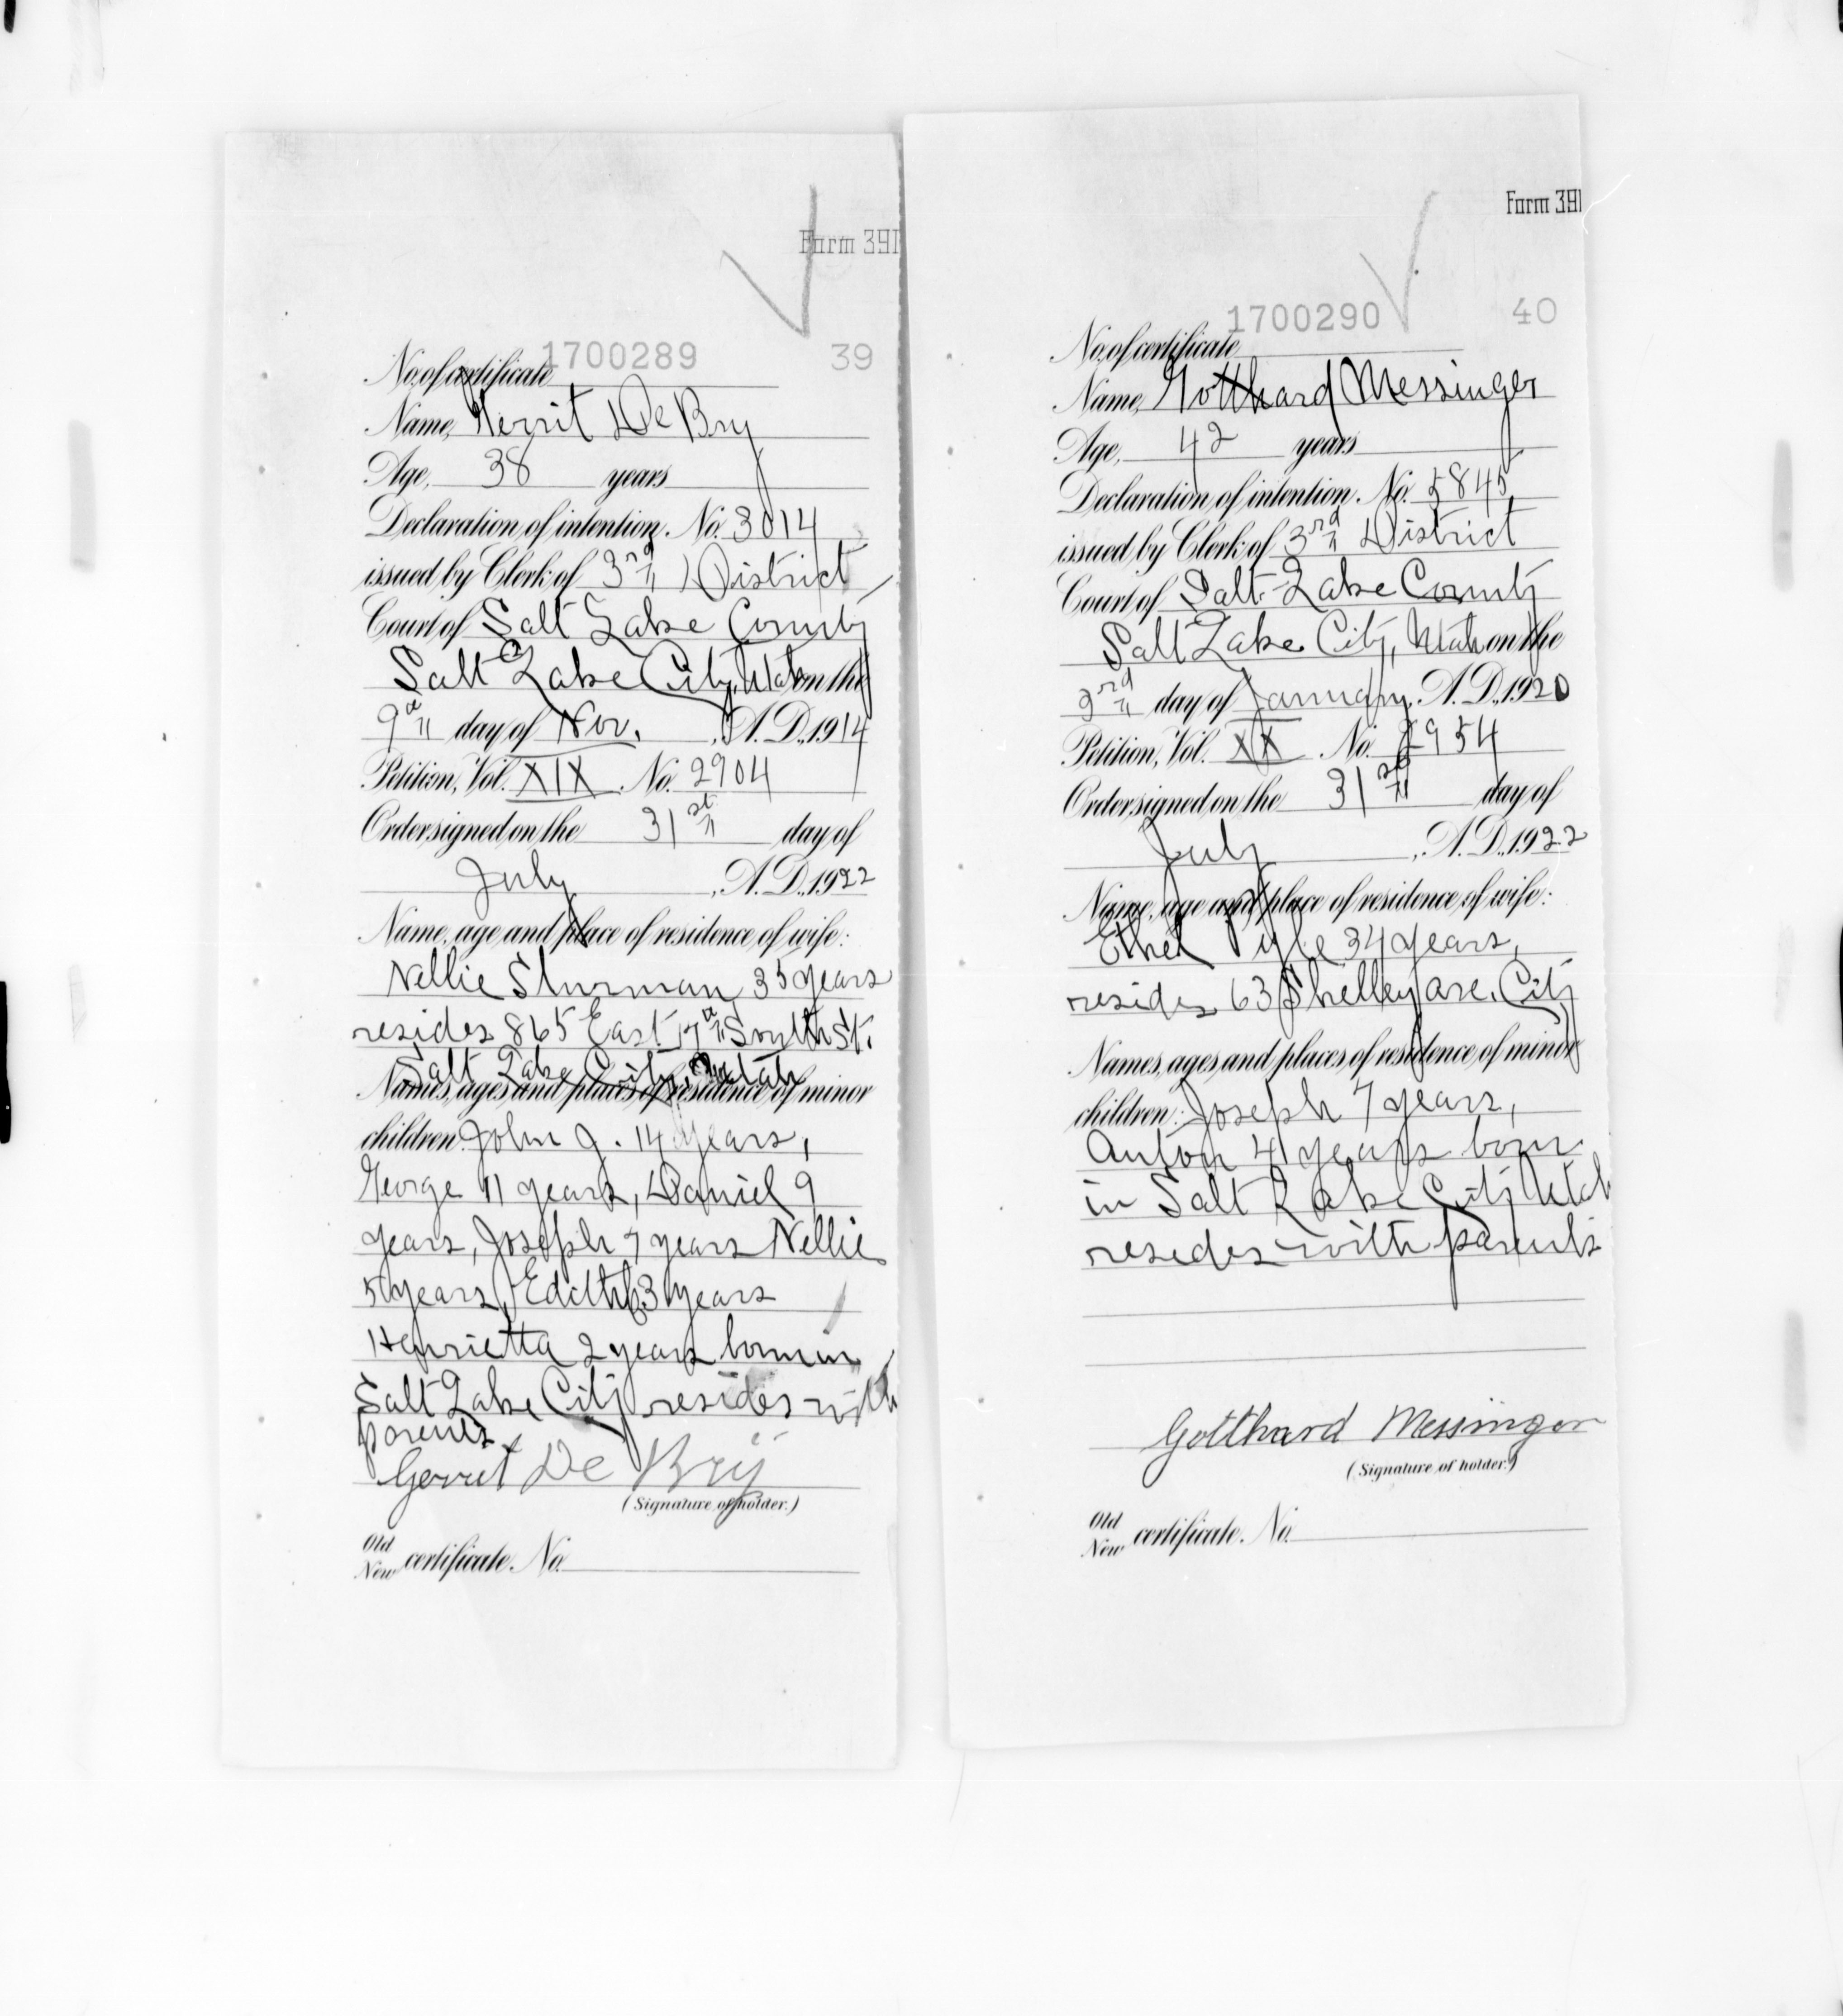 Form 391
No. of certificate 1700289 39
Name, Gerrit De Bry
Age, 38 years
Declaration of intention, No. 3014
issued by Clerk of 3rd District
Court of Salt Lake County
Salt Lake City, Utah on the
9th day of Nov., A.D., 1914
Petition, Vol. XIX No. 2904
Order signed on the 31st day of
July, A.D., 1922
Name, age and place of residence of wife:
Nellie 35 years
resides 865 East 17th South St.
Salt Lake City, Utah
Names, ages and places of residence of minor
children: John G. 14 years,
George 11 years, Daniel 9
years, Joseph 7 years Nellie
5 years, Edith 3 years
Henrietta 2 years born in
Salt Lake City resides with
parents
Gerrit De Bry
(Signature of holder.)
Old
New certificate, No.
Form 391
No. of certificate 1700290 40
Name, Gotthard Messinger
Age, 42 years
Declaration of intention, No. 5845
issued by Clerk of 3rd District
Court of Salt Lake County
Salt Lake City, Utah on the
3rd day of January, A.D., 1920
Petition, Vol. XX No. 2954
Order signed on the 31st day of
July, A.D., 1922
Name, age and place of residence of wife:
Ethel 34 years,
resides 63 Shelley ave. City
Names, ages and places of residence of minor
children: Joseph 7 years,
Anton 4 years born
in Salt Lake City Utah
resides with parents
Gotthard Messinger
(Signature of holder.)
Old
New certificate, No.